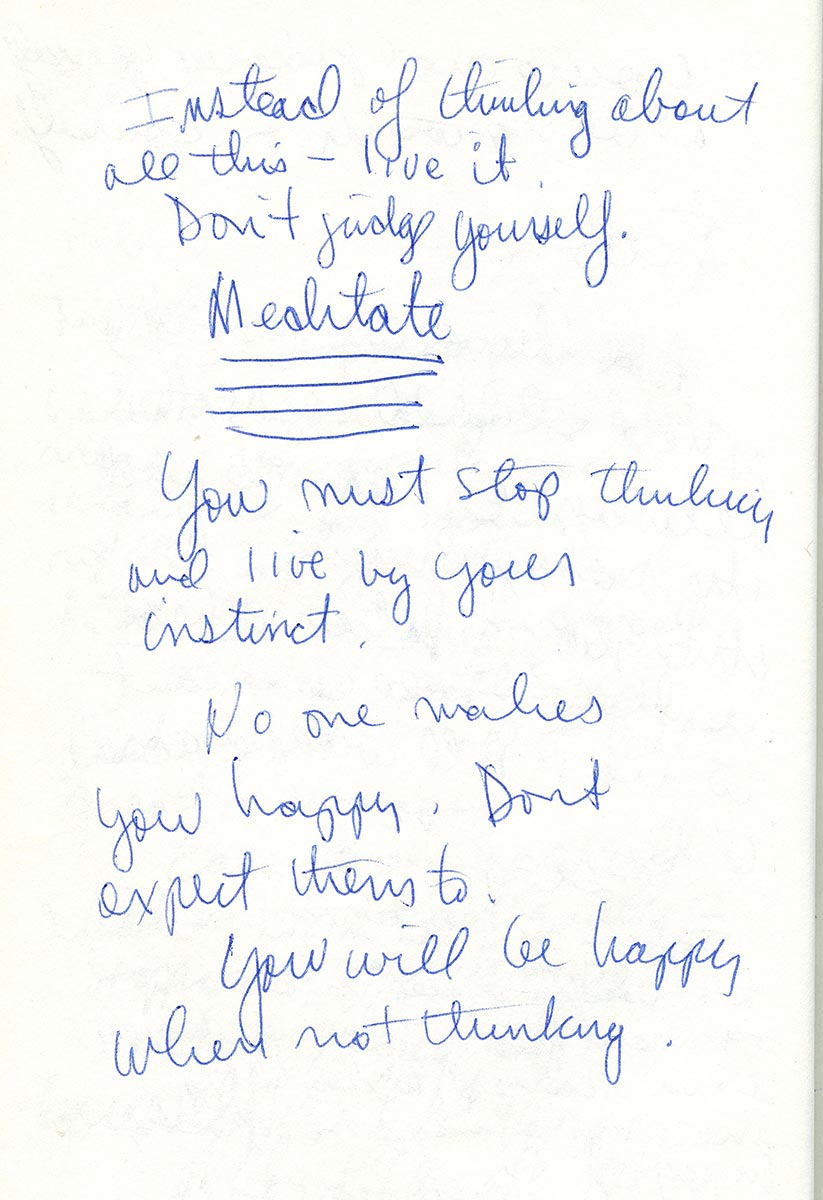 Instead of thinking about
all this – live it.
Don't judge yourself.
Meditate
You must stop thinking
and live by your
instinct.
No one makes
you happy. Dont
expect them to.
You will be happy
when not thinking.